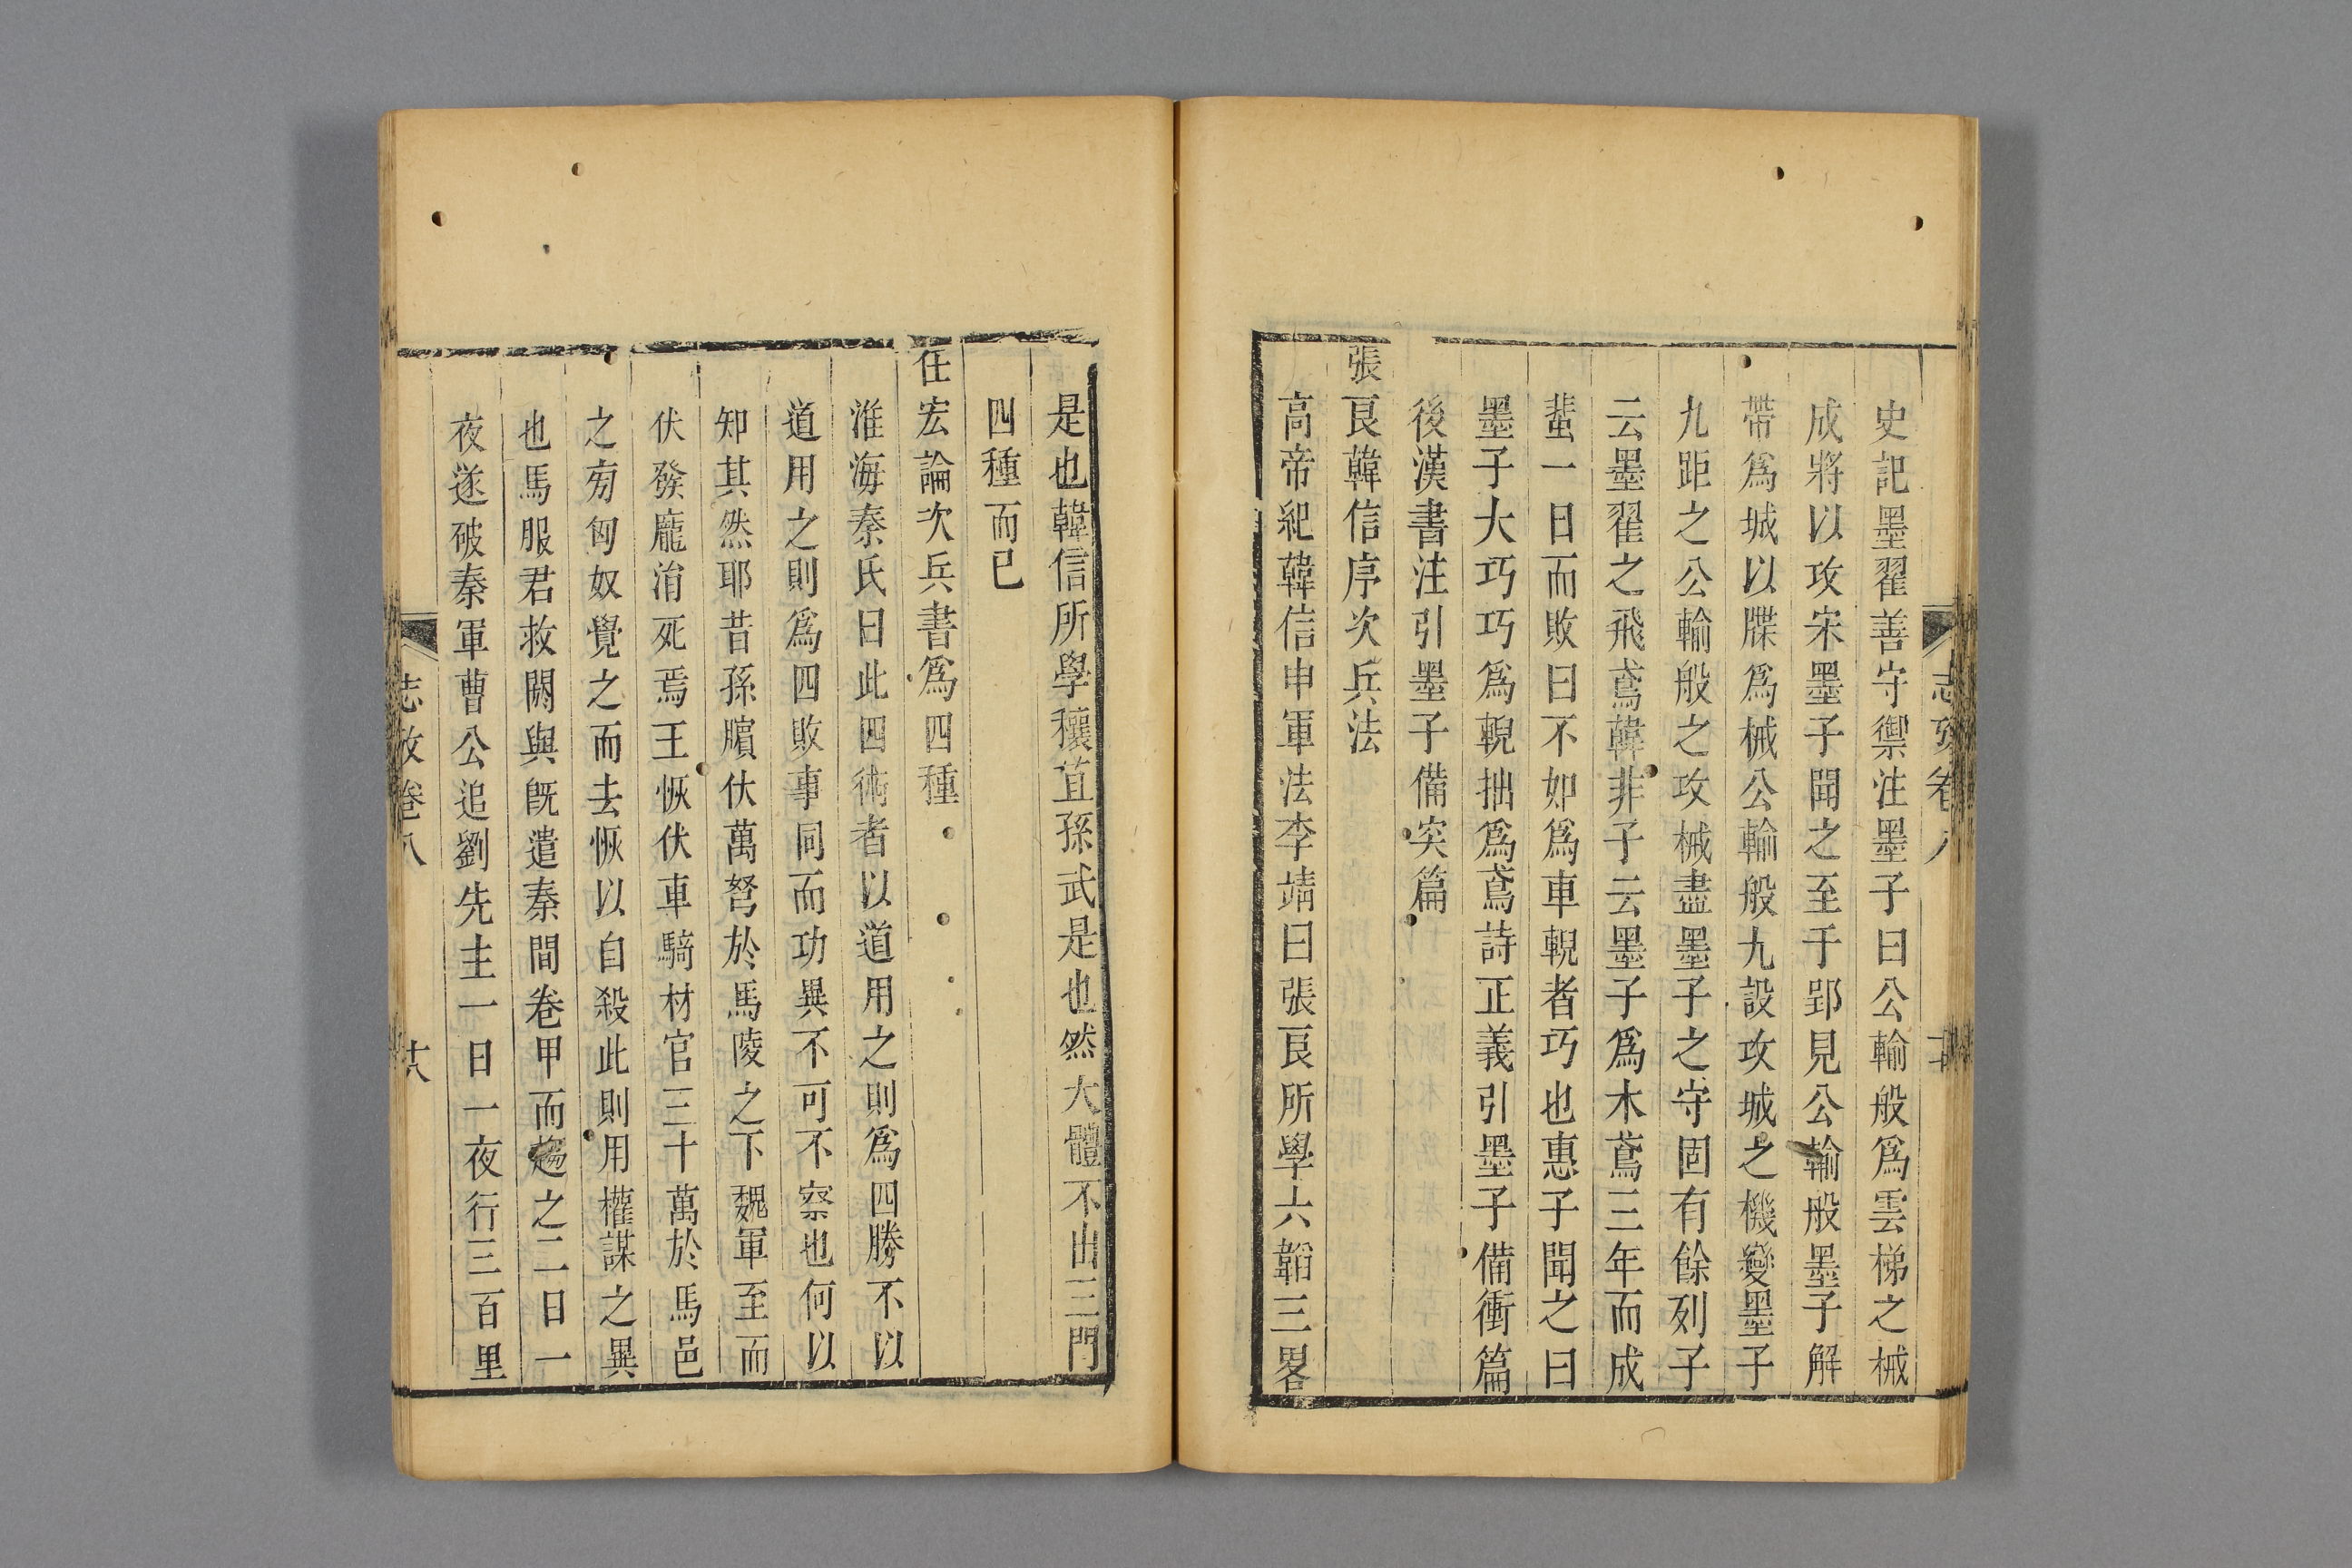 史記墨翟善守禦注墨子曰公輸般爲雲梯之械
成將以攻宋墨子聞之至于郢見公輸般墨子解
帶爲城以牒爲械公輸般九設攻城之機變墨子
九距之公輸般之攻械盡墨子之守固有餘列子
云墨翟之飛鳶韓非子云墨子爲木鳶三年而成
蜚一日而敗曰不如爲車輗者巧也惠子聞之曰
墨子大巧巧爲輗拙爲鳶詩正義引墨子備衝篇
後漢書注引墨子備突篇
張良韓信序次兵法
高帝紀韓信申軍法李靖曰張良所學六韜三畧
是也韓信所學穰苴孫武是也然大體不出三門
四種而已
任宏論次兵書爲四種
淮海秦氏曰此四術者以道用之則爲四勝不以
道用之則爲四敗事同而功異不可不察也何以
知其然耶昔孫臏伏萬弩於馬陵之下魏軍至而
伏發龐涓死焉王恢伏車騎材官三十萬於馬邑
之旁匈奴覺之而去恢以自殺此則用權謀之異
也馬服君救閼與旣遣秦間卷甲而趨之二日一
夜遂破秦軍曹公追劉先主一日一夜行三百里
志攷卷八